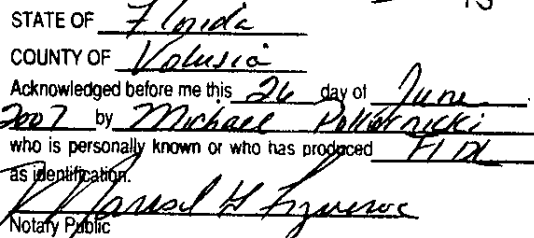 STATE OF Florida
COUNTY OF Volusia
Acknowledged before me this 26 day of June
2007 by Michael
who is personally known or who has produced Fl DL
as identification.
Marisol H Figueroa
Notary Public